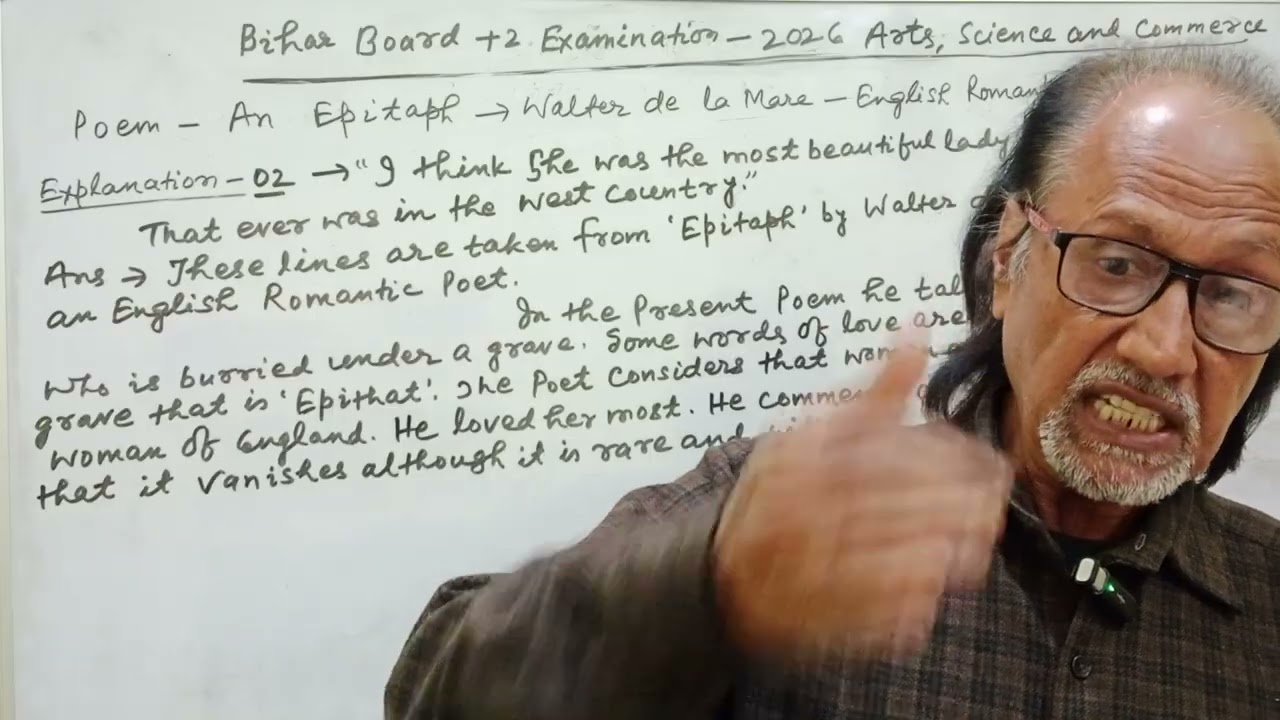 Bihar Board +2 Examination - 2026 Arts, Science and Commerce
Poem - An Epitaph → Walter de la Mare - English
Explanation - 02 → "I think She was the most beautiful lady
That ever was in the west Country."
Ans → These lines are taken from 'Epitaph' by Walter
an English Romantic Poet.
In the Present Poem he
who is burried under a grave. Some words of love are
grave that is 'Epithat'. The Poet Considers that
woman of England. He loved her most. He
that it vanishes although it is rare and